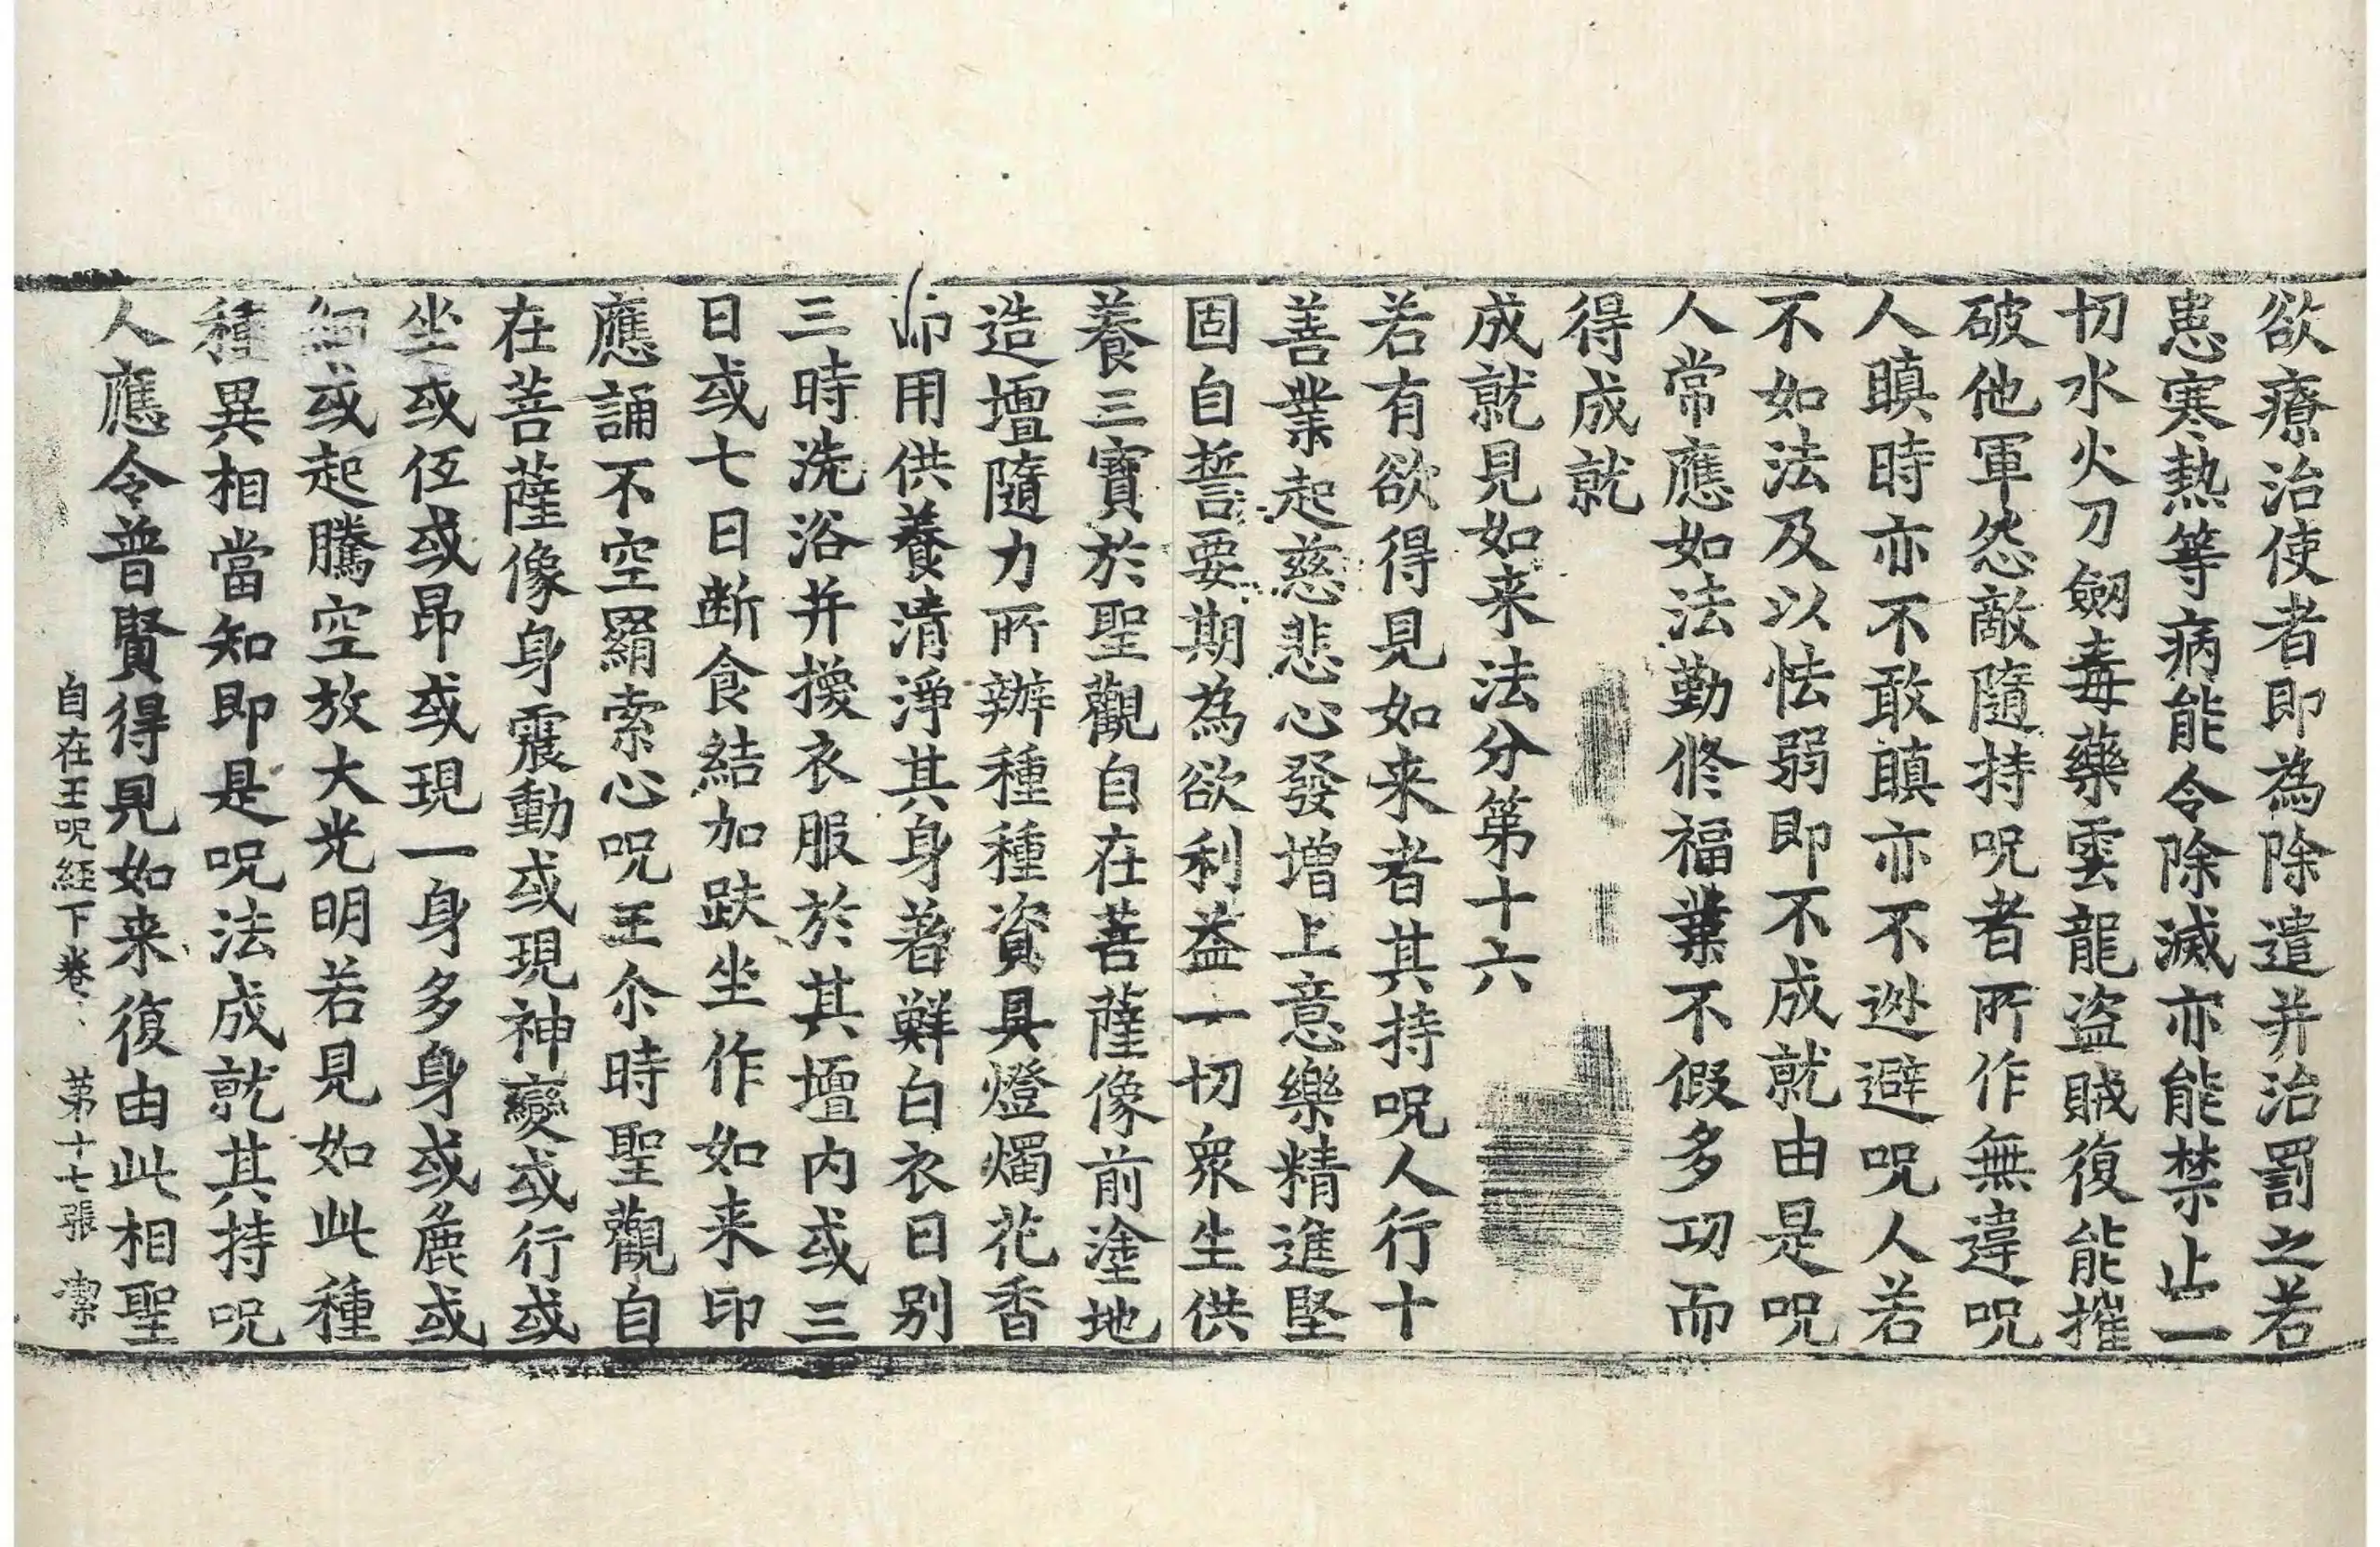 欲療治使者即為除遣并治罰之若
患寒熱等病能令除滅亦能禁止一
切水火刀劒毒藥雲龍盜賊復能摧
破他軍怨敵隨持呪者所作無違呪
人瞋時亦不敢瞋亦不迯避呪人若
不如法及以怯弱即不成就由是呪
人常應如法勤修福業不假多功而
得成就
成就見如来法分第十六
若有欲得見如来者其持呪人行十
善業起慈悲心發增上意樂精進堅
固自誓要期為欲利益一切衆生供
養三寶於聖觀自在菩薩像前塗地
造壇隨力所辦種種資具燈燭花香
而用供養清淨其身著鮮白衣日別
三時洗浴并換衣服於其壇内或三
日或七日断食結加趺坐作如来印
應誦不空羂索心呪王尒時聖觀自
在菩薩像身震動或現神變或行或
坐或伍或昂或現一身多身或麁或
細或起騰空放大光明若見如此種
種異相當知即是呪法成就其持呪
人應令普賢得見如来復由此相聖
自在王呪経下卷 苐十七張 潔